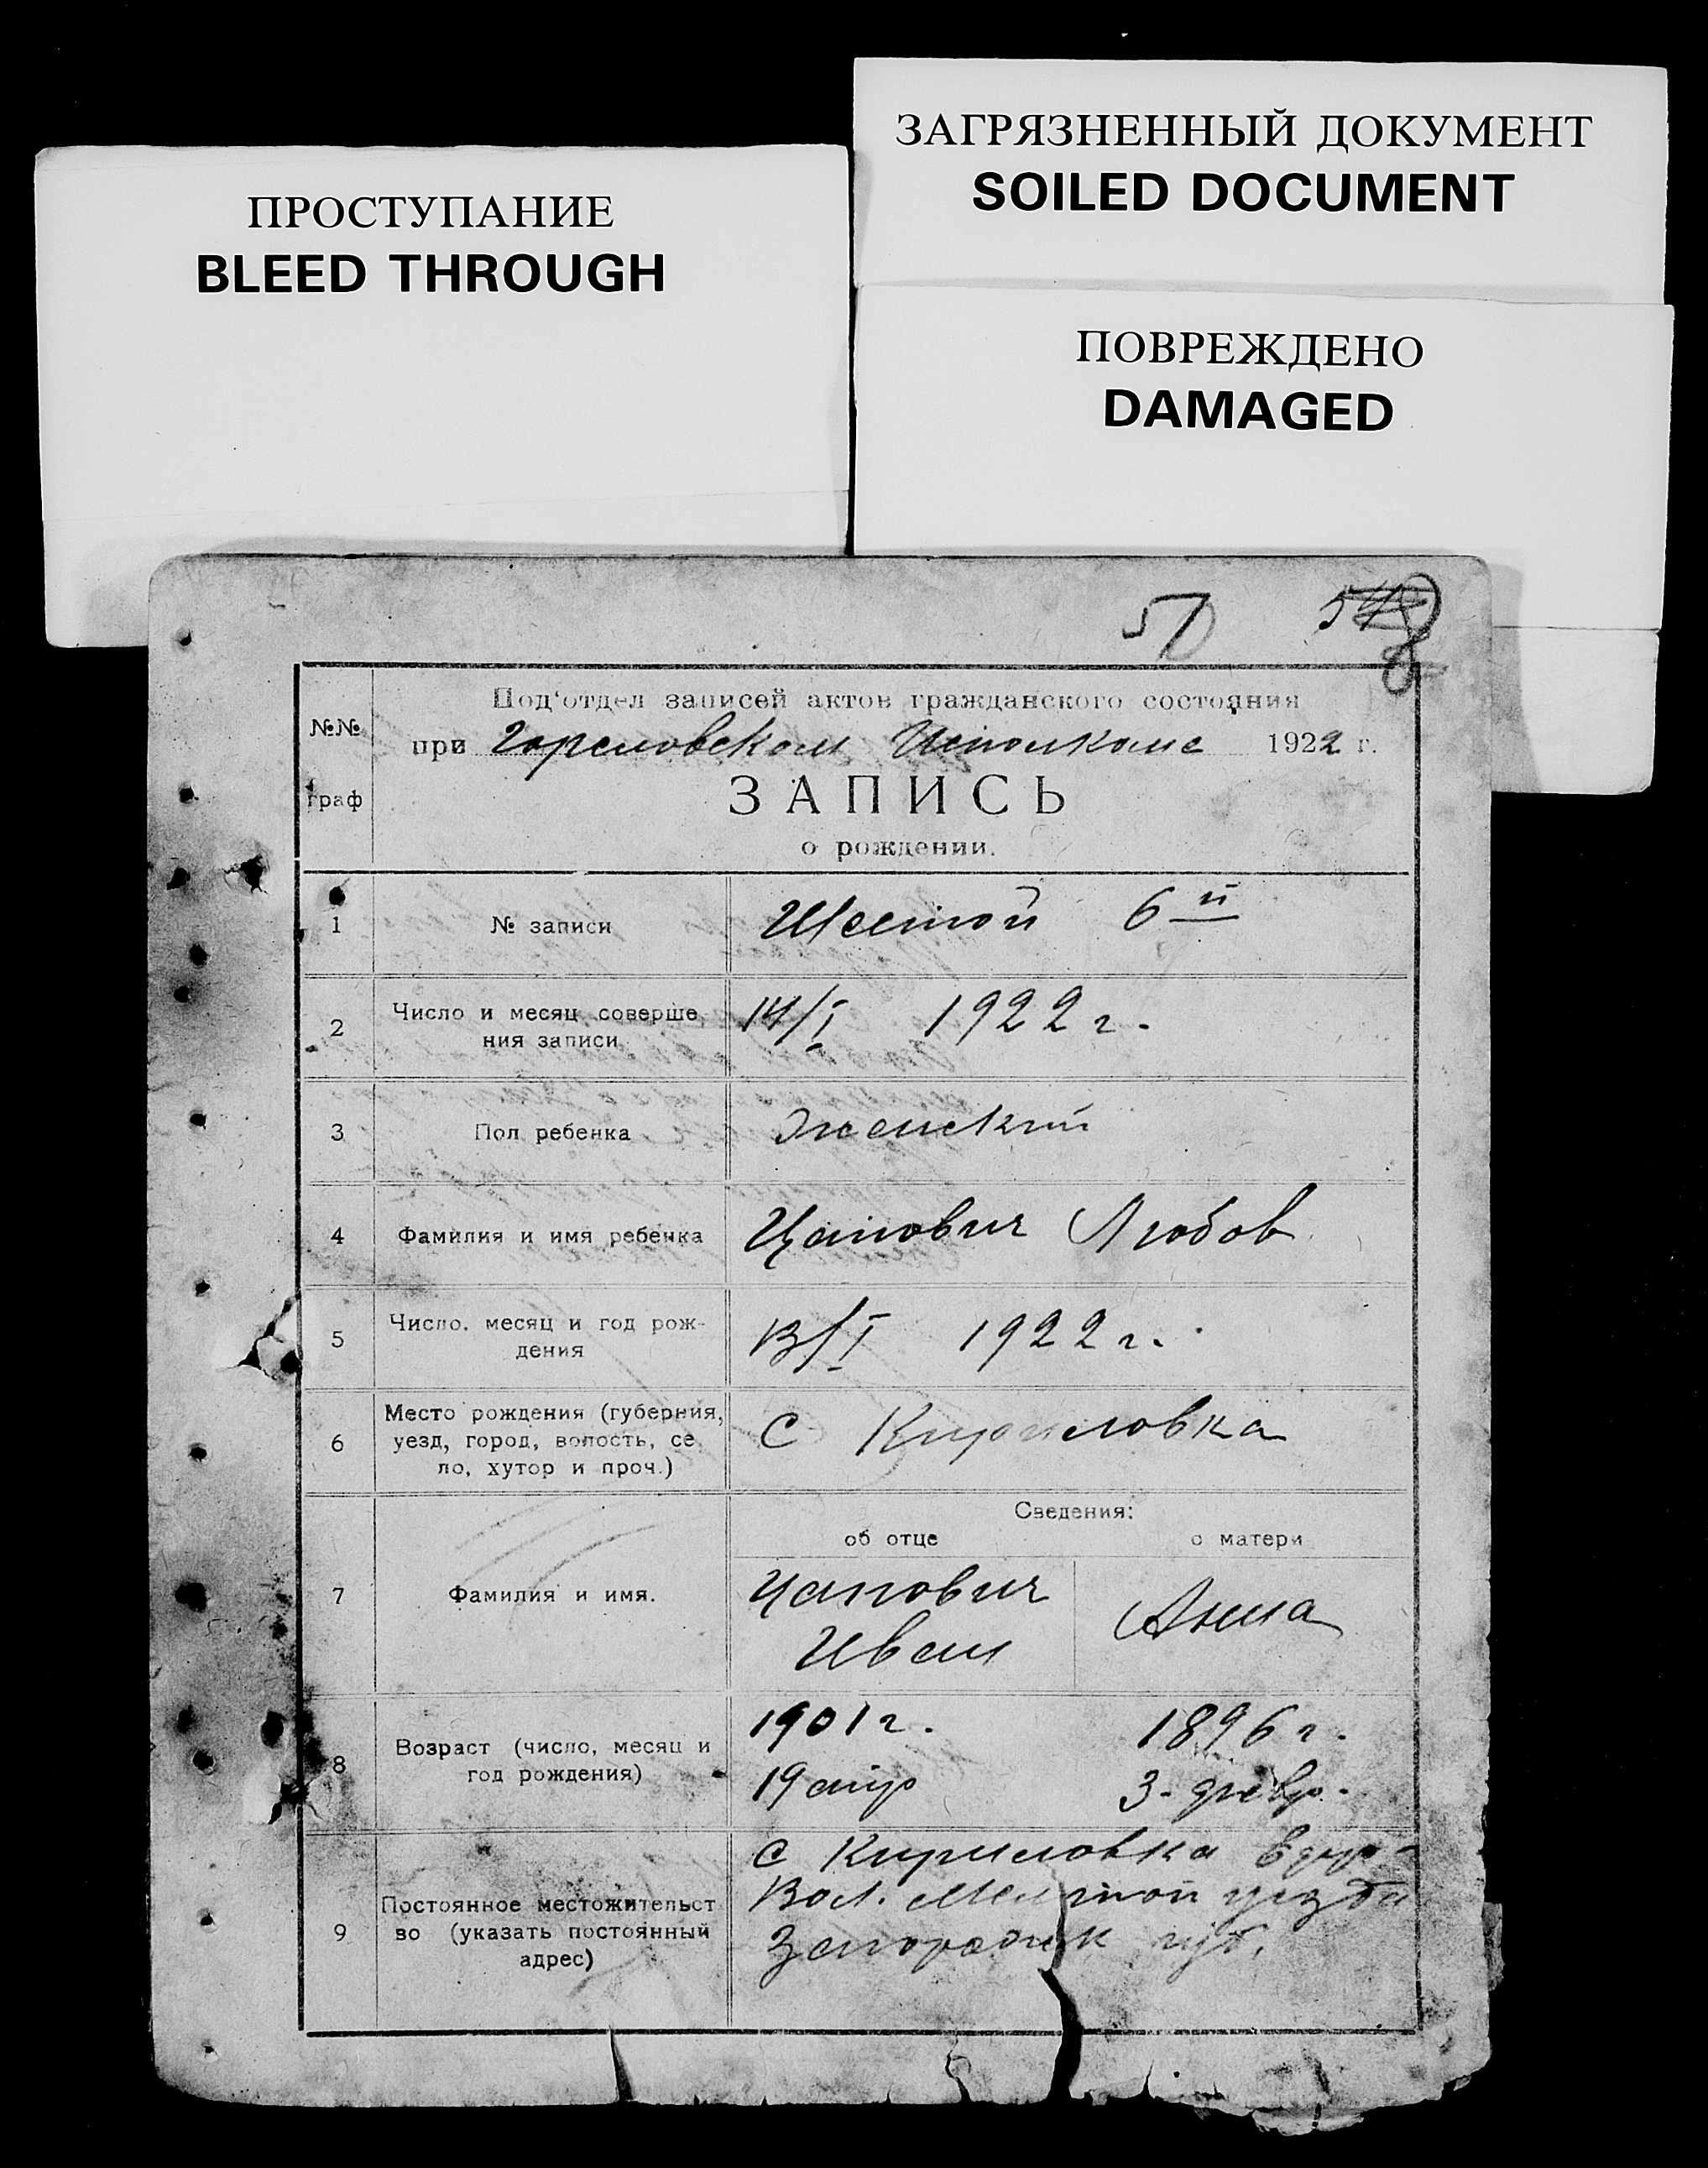 ЗАГРЯЗНЕННЫЙ ДОКУМЕНТ
SOILED DOCUMENT
ПРОСТУПАНИЕ
BLEED THROUGH
ПОВРЕЖДЕНО
DAMAGED
№№
граф
Под‘отдел записей актов гражданского состояния
при Гореловском Исполкоме 1922 г.
ЗАПИСЬ
о рождении.
1 № записи Шестой 6й
2 Число и месяц соверше
ния записи 14/I 1922 г.
3 Пол ребенка женский
4 Фамилия и имя ребенка Цапович Любов
5 Число, месяц и год рож-
дения 13/I 1922 г.
6 Место рождения (губерния,
уезд, город, волость, се
ло, хутор и проч.) С Кириловка
Сведения:
об отце о матери
7 Фамилия и имя.
Цапович
Иван
Анна
8 Возраст (число, месяц и
год рождения)
1901 г. 1896 г.
19 апр 3-февр.
9 Постоянное местожительст
во (указать постоянный
адрес)
С Кириловка
Вол. уезда
Запорожск губ.